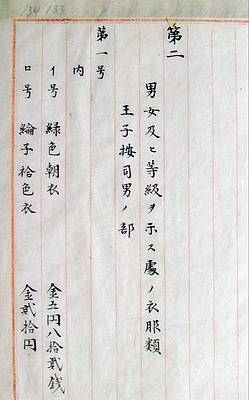 134 133
第二
男女及ヒ等級ヲ示ス處ノ衣服類
王子按司男ノ部
第一号
内
イ号 緑色朝衣 金五円八拾貳銭
ロ号 綸子袷色衣 金貳拾円